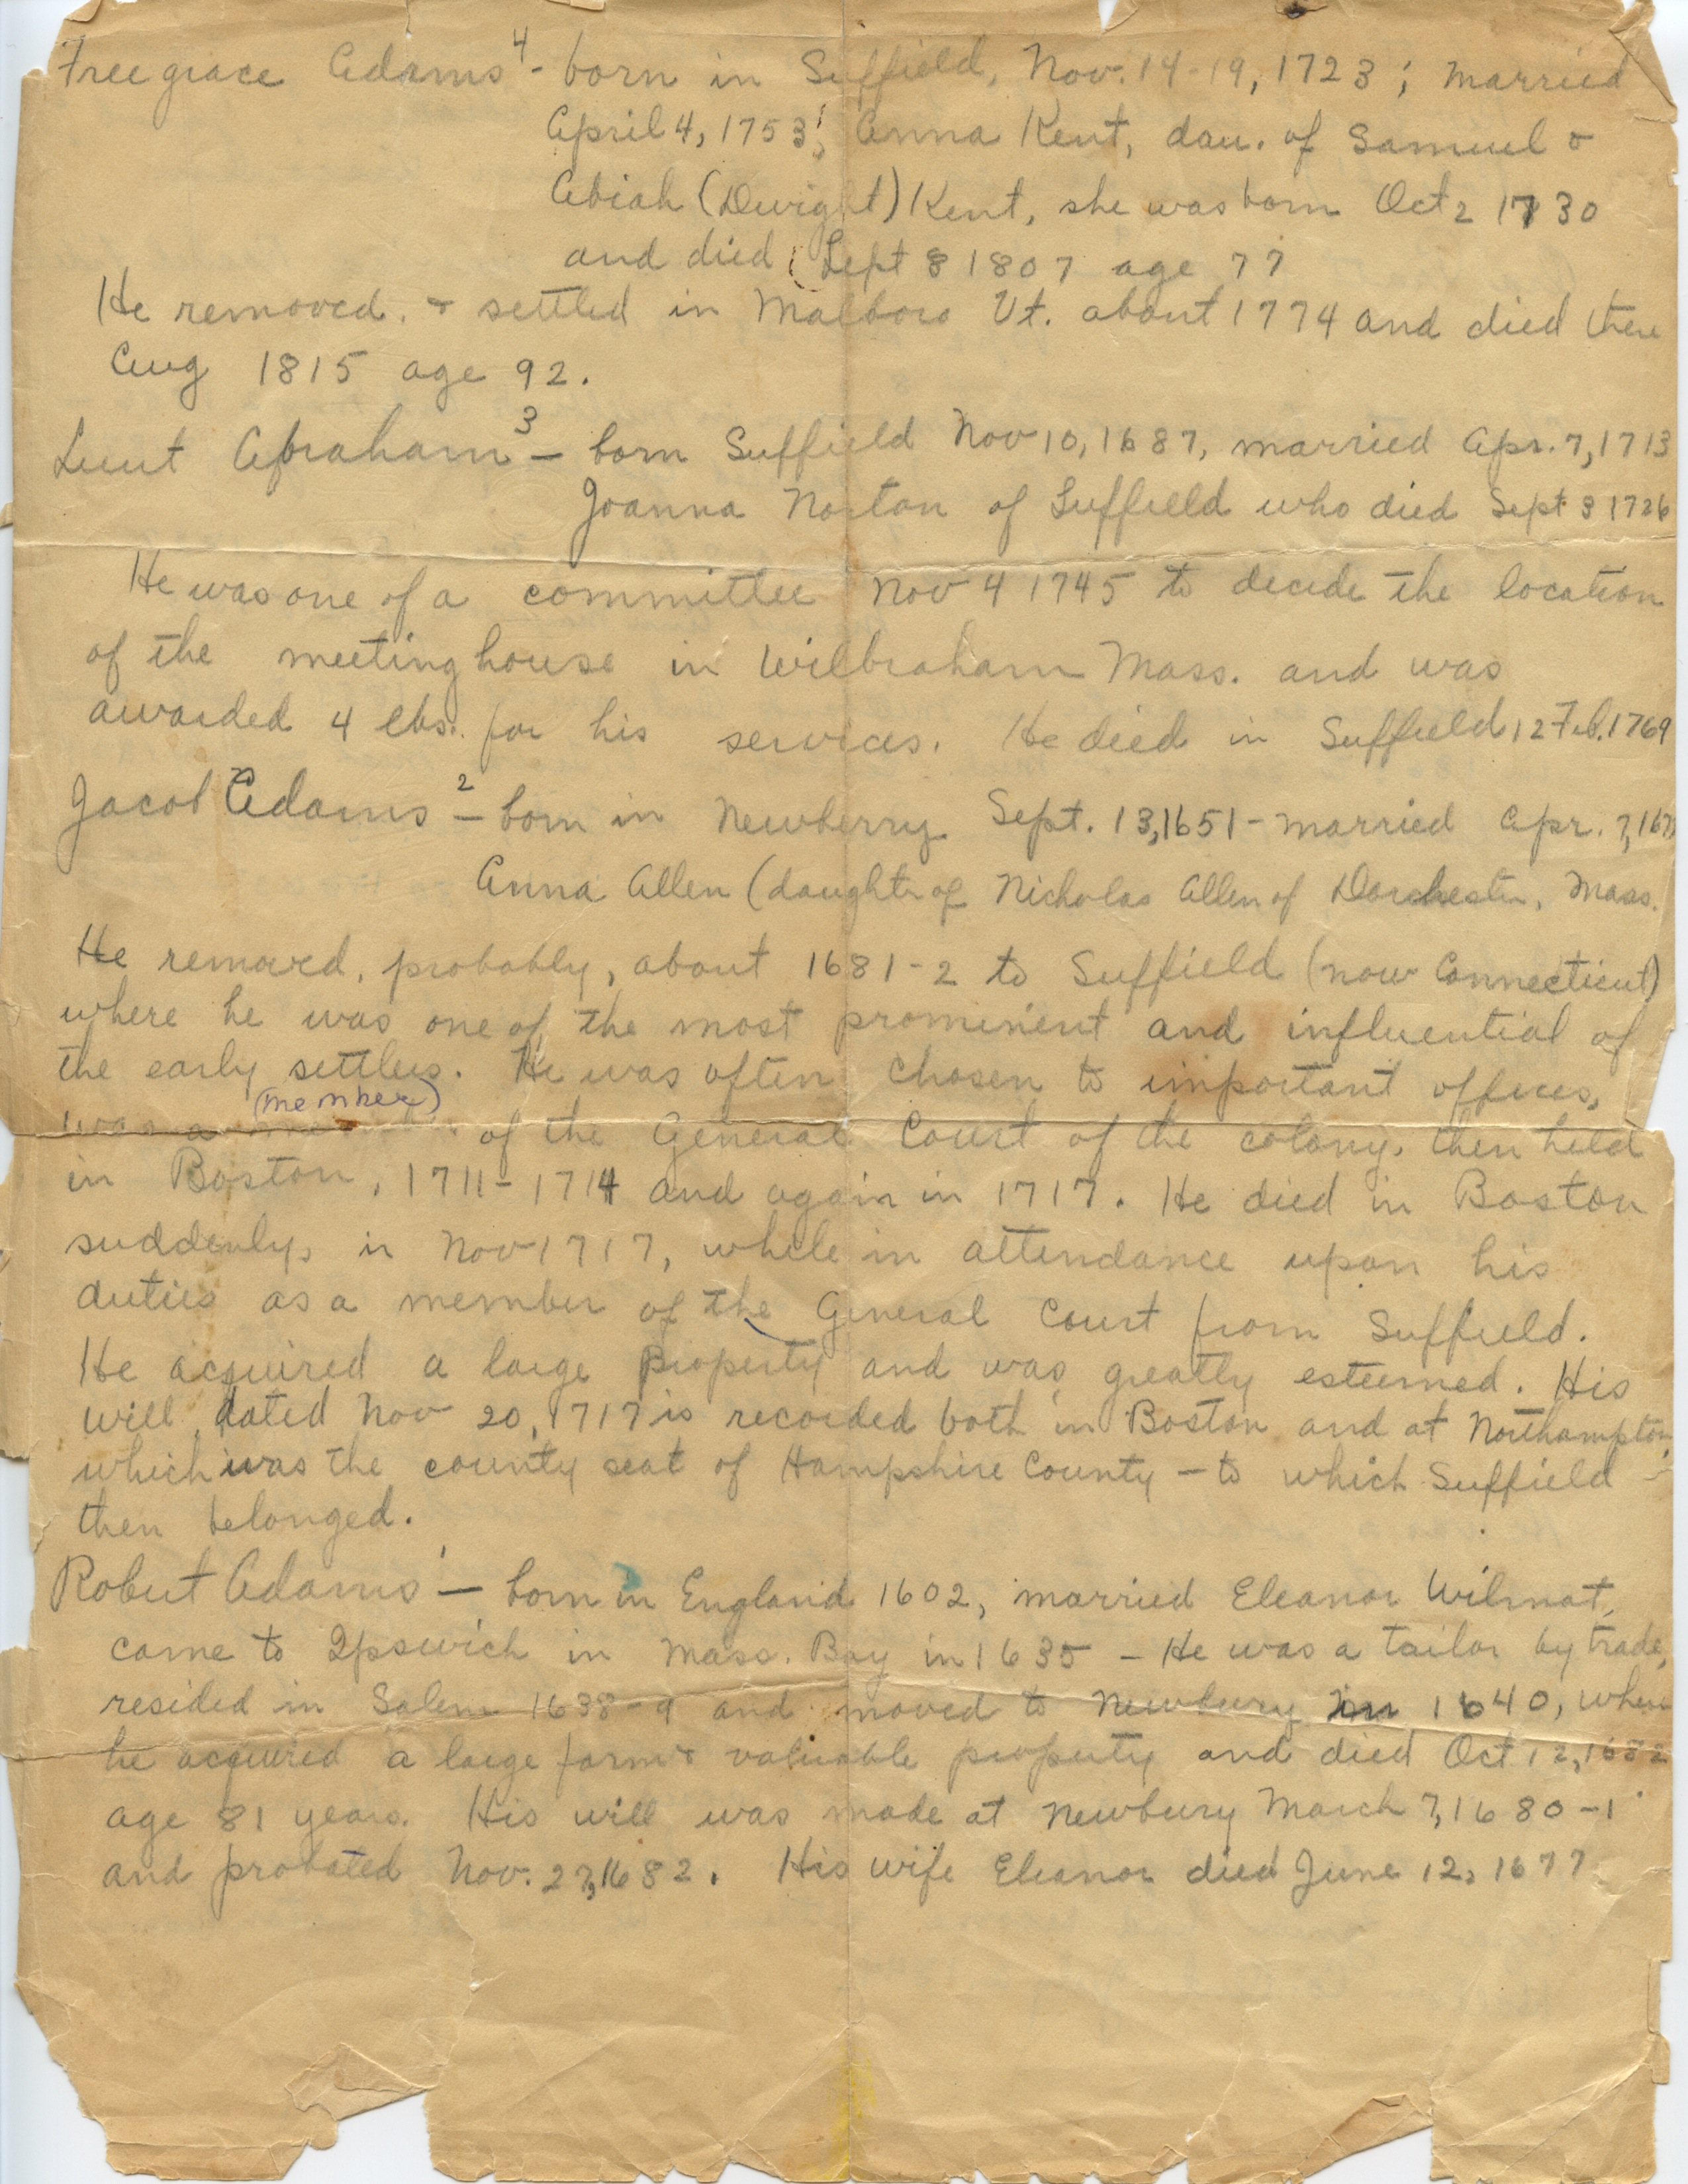 Freegrace Adams⁴ - born in Suffield, Nov. 14-19, 1723; married
April 4, 1753; Anna Kent, dau. of Samuel &
Abiah (Dwight) Kent, she was born Oct 2 1730
and died Sept 8 1807 age 77
He removed. & settled in Malboro Vt. about 1774 and died there
Aug 1815 age 92.
Lieut Abraham³ - born Suffield Nov 10, 1687, married Apr. 7, 1713
Joanna Norton of Suffield who died Sept 8 1726
He was one of a committee Nov 4 1745 to decide the location
of the meetinghouse in Wilbraham Mass. and was
awarded 4 lbs. for his services. He died in Suffield 12 Feb. 1769
Jacob Adams² - born in Newberry Sept. 13, 1651 - married Apr. 7, 167
Anna Allen (daughter of Nicholas Allen of Dorchester, Mass.
He removed, probably, about 1681-2 to Suffield (now Connecticut)
where he was one of the most prominent and influential of
the early settlers. He was often chosen to important offices,
(member)
was a of the General Court of the colony, then held
in Boston, 1711-1714 and again in 1717. He died in Boston
suddenly, in Nov 1717, while in attendance upon his
duties as a member of the General Court from Suffield.
He acquired a large Property and was greatly esteemed. His
will, dated Nov 20, 1717 is recorded both in Boston and at Northampton,
which was the county seat of Hampshire County - to which Suffield
then belonged.
Robert Adams¹ - born in England 1602, married Eleanor Wilmot,
came to Ipswich in Mass. Bay in 1635 - He was a tailor by trade,
resided in Salem 1638-9 and moved to Newbury in 1640, where
he acquired a large farm & valuable property and died Oct 12, 1682
age 81 years. His will was made at Newbury March 7, 1680-1
and probated Nov. 27, 1682. His wife Eleanor died June 12, 1677